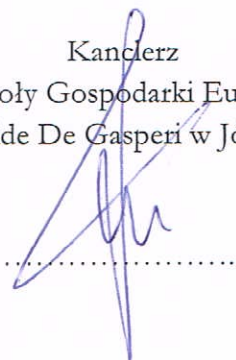 Kanclerz
oły Gospodarki Eu
de De Gasperi w Jó
........................